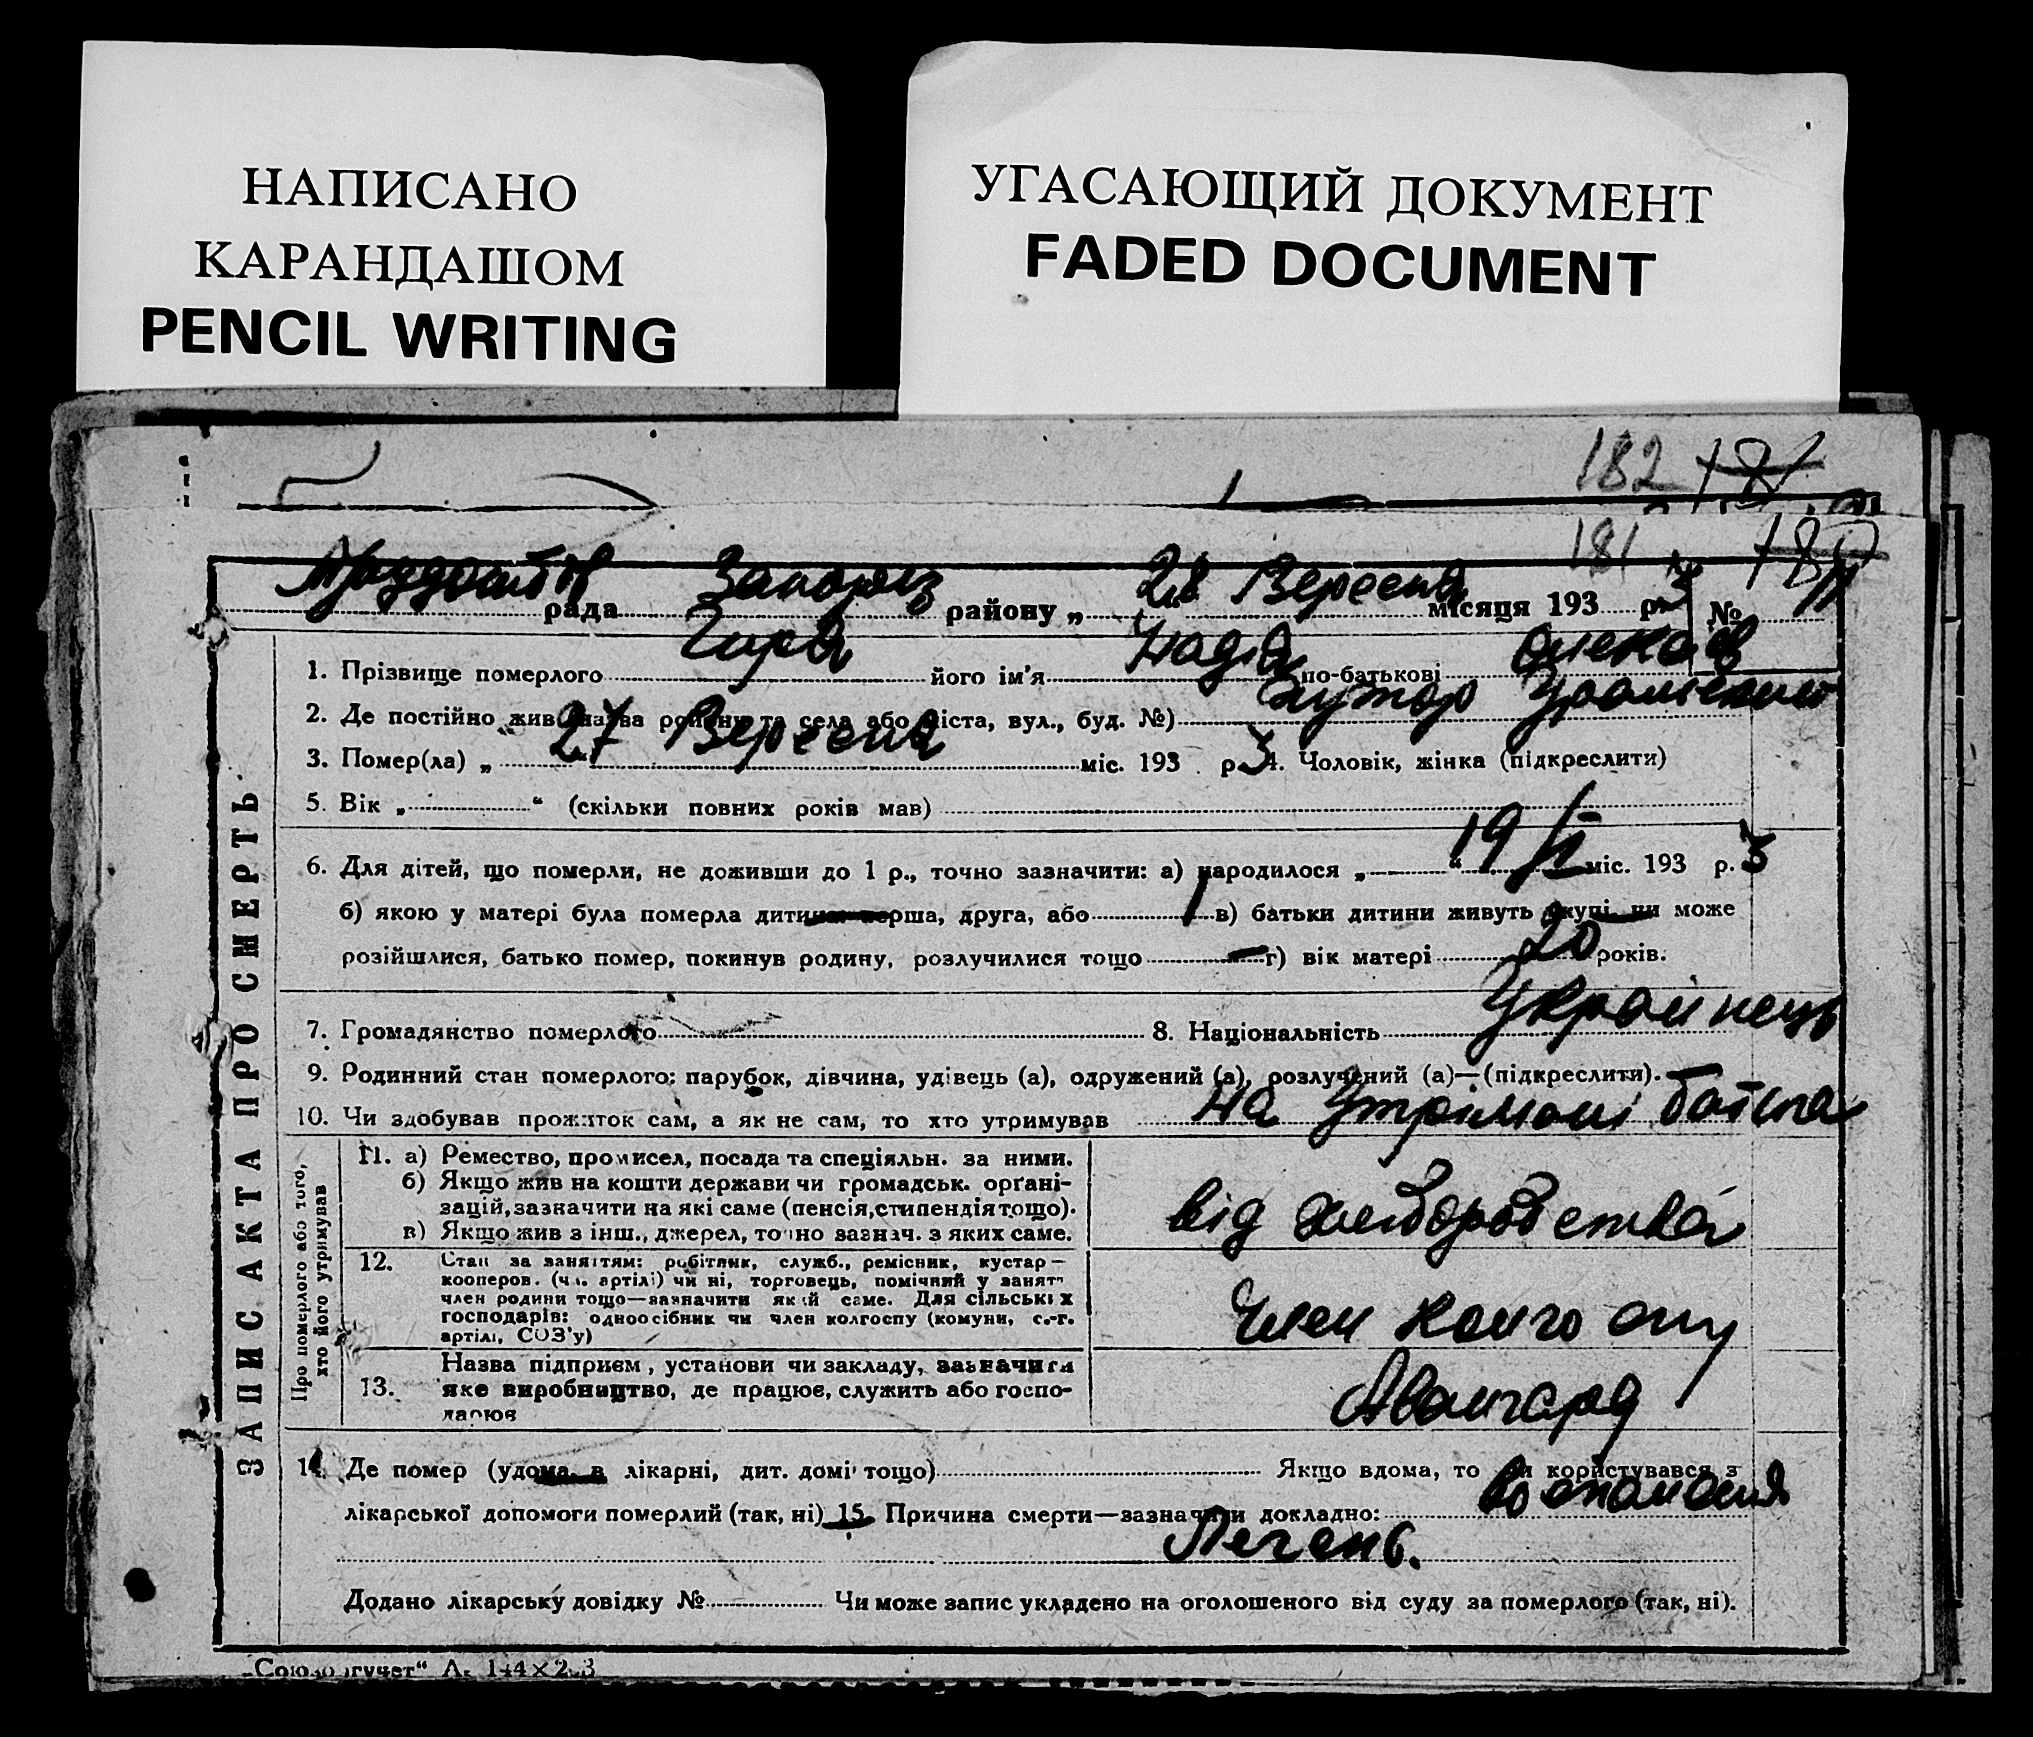 НАПИСАНО
КАРАНДАШОМ
PENCIL WRITING
УГАСАЮЩИЙ ДОКУМЕНТ
FADED DOCUMENT
182 181
181 180
рада Запоріз району „ 28 Вересня місяця 193 3 р. № 11
1. Прізвище померлого Гира його ім'я Надія по-батькові Олексів
2. Де постійно жив (назва району та села або міста, вул., буд. №) Хутор
3. Помер(ла) „ 27 Вересня міс. 193 3 р. 4. Чоловік, жінка (підкреслити)
5. Вік „ “ (скільки повних років мав)
6. Для дітей, що померли, не доживши до 1 р., точно зазначити: а) народилося „ “ 19 міс. 193 р. 3
б) якою у матері була померла дитина: перша, друга, або в) батьки дитини живуть вкупі, чи може
розійшлися, батько помер, покинув родину, розлучилися тощо — г) вік матері 20 років.
7. Громадянство померлого 8. Національність Украйнець
9. Родинний стан померлого: парубок, дівчина, удівець (а), одружений (а), розлучений (а)—(підкреслити).
10. Чи здобував прожиток сам, а як не сам, то хто утримував На Утримані батька
11. а) Ремество, промисел, посада та спеціяльн. за ними.
б) Якщо жив на кошти держави чи громадськ. орґані-
зацій, зазначити на які саме (пенсія, стипендія тощо).
в) Якщо жив з інш., джерел, точно зазнач. з яких саме.
від хлеборобства
12. Стан за заняттям: робітник, служб., ремісник, кустар—
кооперов. (чл. артілі) чи ні, торговець, помічний у занятт
член родини тощо—зазначити який саме. Для сільських
господарів: одноосібник чи член колгоспу (комуни, с.-г.
артілі, СОЗ'у)
Член колгоспу
13. Назва підприєм, установи чи закладу, зазначити
яке виробництво, де працює, служить або госпо-
дарює
Авангард
14. Де помер (удома, в лікарні, дит. домі тощо) Якщо вдома, то чи користувався з
лікарської допомоги померлий (так, ні) 15. Причина смерти—зазначити докладно: Воспаления
Легень.
Додано лікарську довідку № Чи може запис укладено на оголошеного від суду за померлого (так, ні).
ЗАПИС АКТА ПРО СМЕРТЬ
Про померлого або того,
хто його утримував